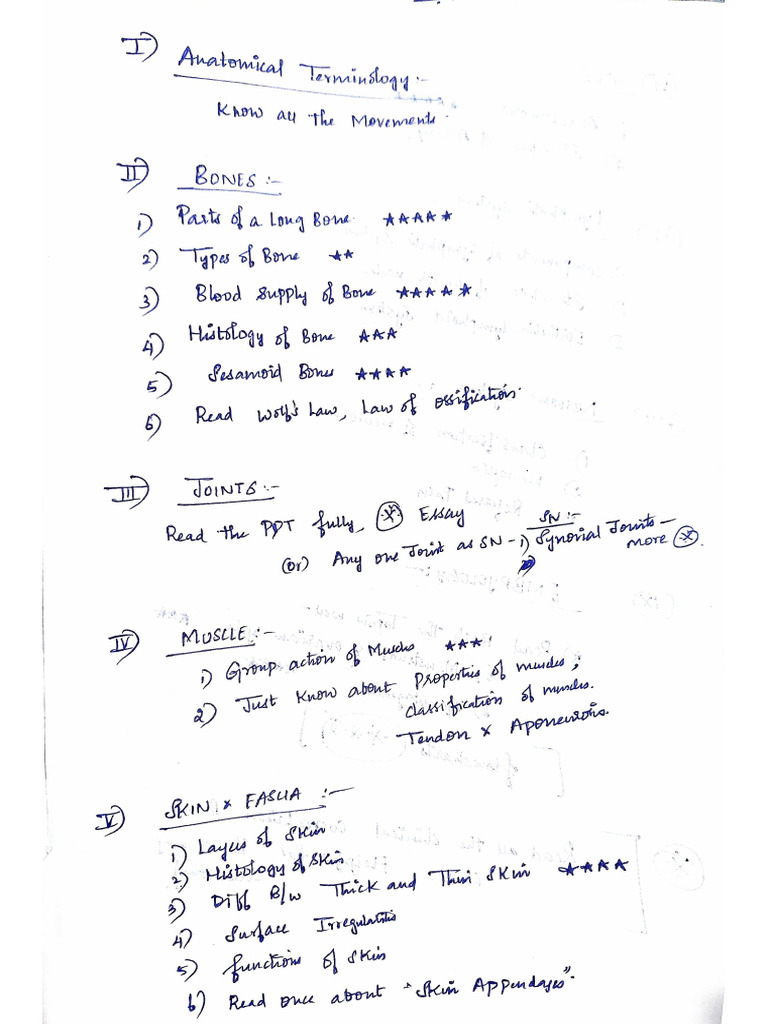 I) Anatomical Terminology:-
Know all the Movements.
II) BONES:-
1) Parts of a Long Bone ★★★★★
2) Types of Bone ★★
3) Blood Supply of Bone ★★★★★
4) Histology of Bone ★★★
5) Sesamoid Bones ★★★★
6) Read Wolf's Law, Law of Ossification.
III) JOINTS:-
Read the PPT fully, Essay
SN:-
(or) Any one Joint as SN - 1) Synovial Joints -
more
IV) MUSCLE:-
1) Group action of Muscles ★★★
2) Just Know about Properties of muscles;
Classification of muscles.
Tendon x Aponeurosis.
V) SKIN x FASCIA:-
1) Layers of Skin
2) Histology of Skin
3) Diff B/w Thick and Thin Skin ★★★★
4) Surface Irregularities
5) functions of Skin
6) Read once about "Skin Appendages".